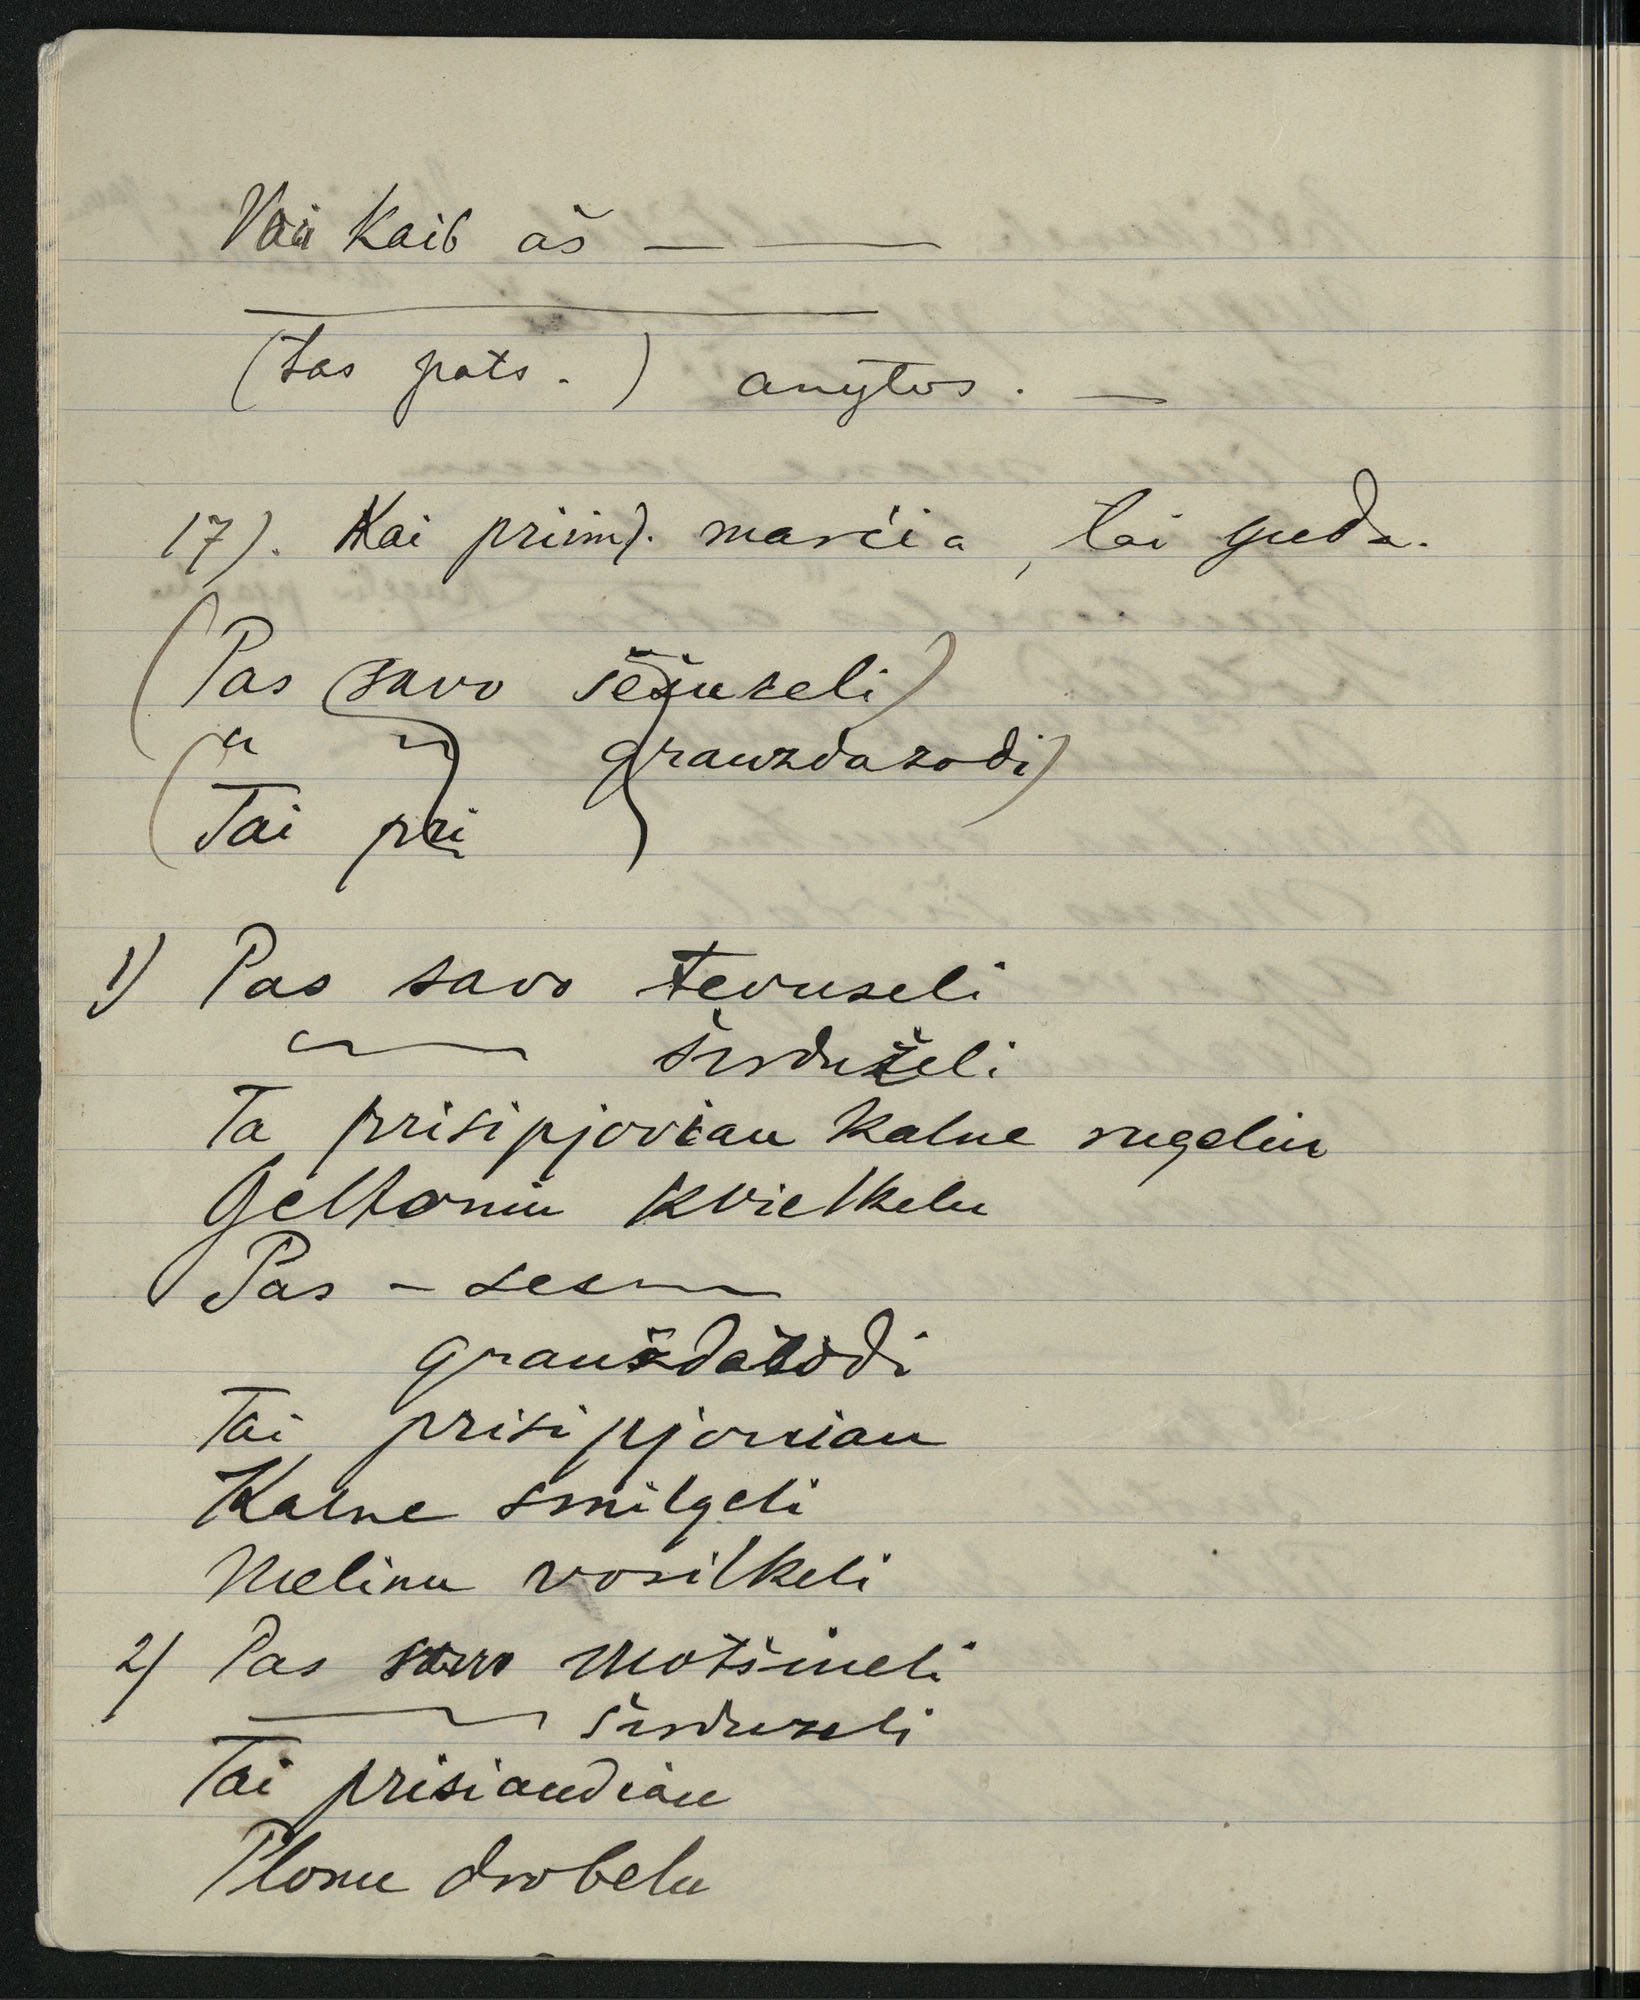 Vai kaib aš — —
(tas pats.) anytos. —
17). Kai priim). marčia, tai gieda.
(Pas (savo šešuseli)
" " grauzdazodi)
(Tai pri
1) Pas savo tevuseli
širduželi
Ta prisipjoviau kalne rugeliu
Geltoniu kvietkelu
Pas –
grauždažodi
Tai prisipjoviau
Kalne smilgeli
Melinu vosilkeli
2) Pas savo motšineli
širduzeli
Tai prisiaudiau
Plonu drobelu